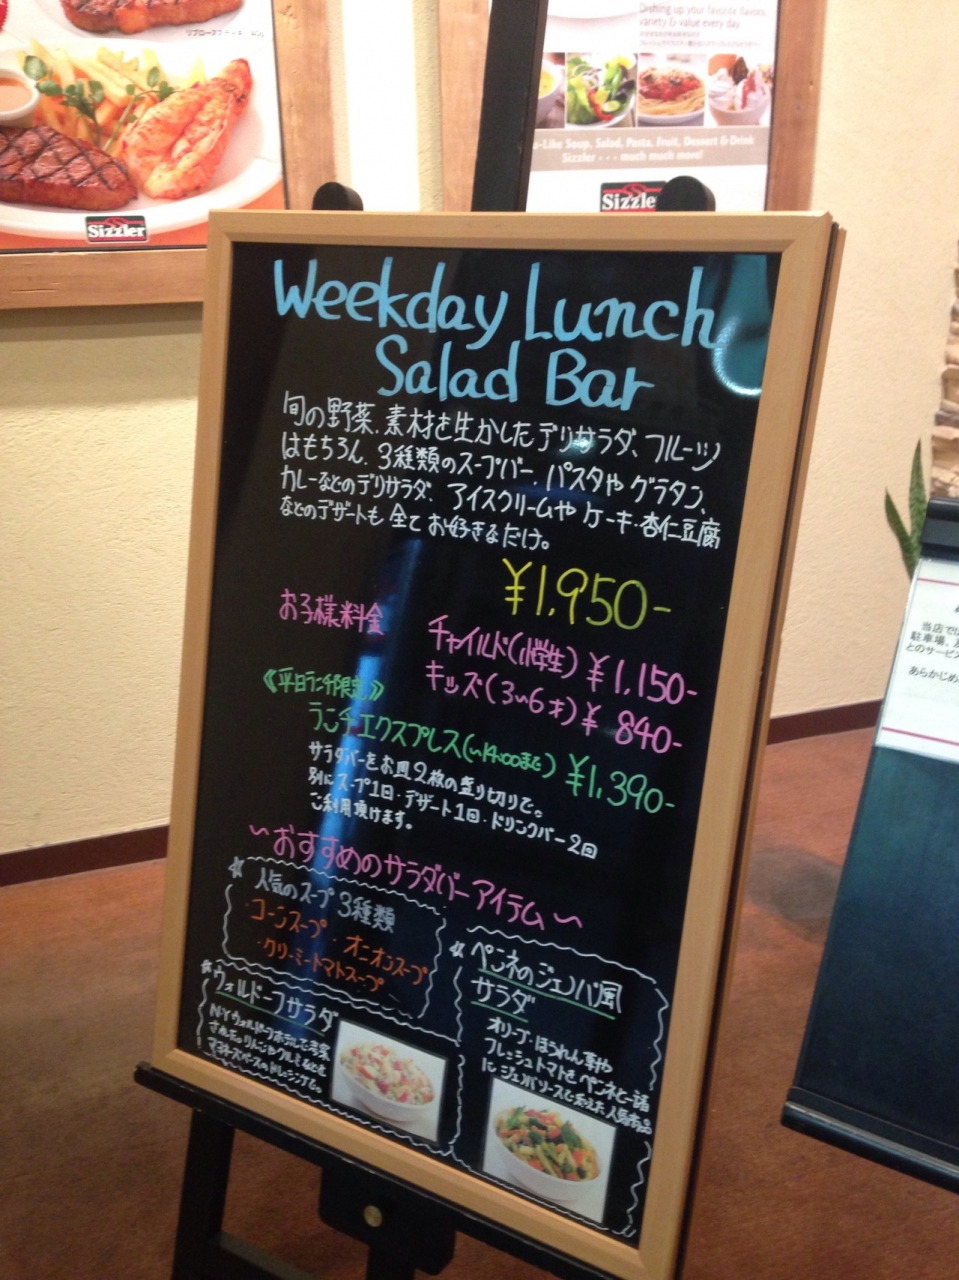 Dishing up your favorite flavors,
variety & value every day
u-Like Soup, Salad, Pasta, Fruit, Dessert & Drink
Sizzler - - - much much more!
Sizzler
Sizzle
Weekday Lunch
Salad Bar
旬の野菜、素材を生かしたデリサラダ、フルーツ
はもちろん、3種類のスープバー、パスタやグラタン、
カレーなどのデリサラダ、アイスクリームやケーキ・杏仁豆腐
などのデザートも全てお好きなだけ。
¥1,950-
お子様料金
チャイルド(小学生) ¥1,150-
キッズ(3〜6才) ¥ 840-
《平日ランチ限定》
ランチエクスプレス(〜14:00まで) ¥1,390-
サラダバーをお皿2枚の盛り切りで。
別にスープ1回・デザート1回・ドリンクバー2回
ご利用頂けます。
〜おすすめのサラダバーアイテム〜
人気のスープ3種類
・コーンスープ ・オニオンスープ
・クリーミートマトスープ
ウォルドーフサラダ
N.Yウォルドーフホテルで考案
された。りんごやクルミなどを
マヨネーズベースのドレッシングで。
ペンネのジェノバ風
サラダ
オリーブ・ほうれん草や
フレッシュトマトをペンネと一緒
にジェノバソースで和えた人気商品
当店では
駐車場、
とのサービス
あらかじめ